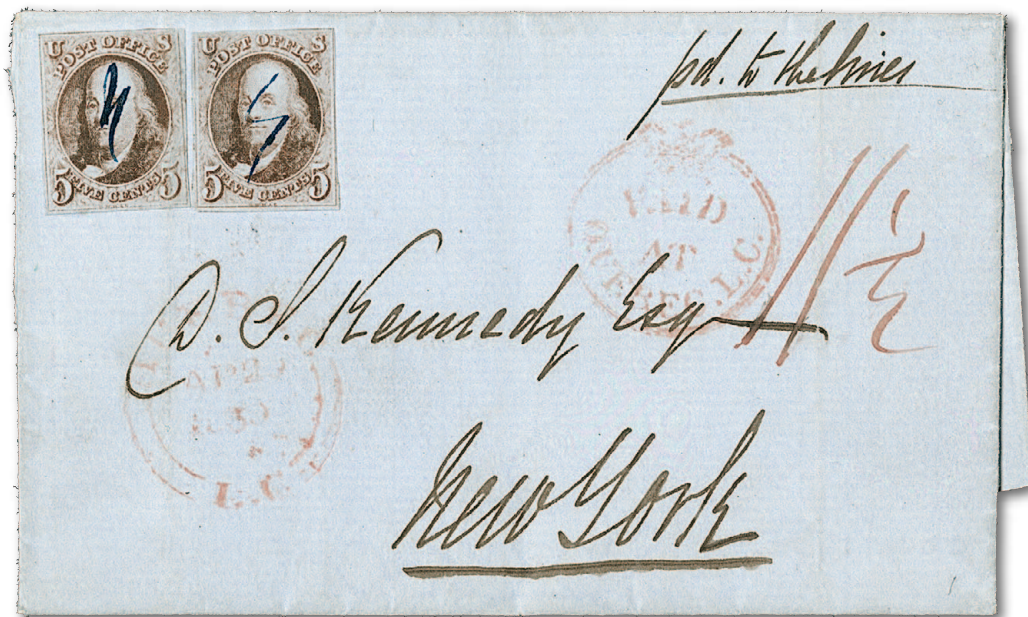 U POST OFFICE S
5 FIVE CENTS 5
U POST OFFICE S
5 FIVE CENTS 5
pd. to the lines
PAID
AT
QUEBEC. L.C.
11½
D. S. Kennedy Esq
AP 2
1850
L.C.
New York